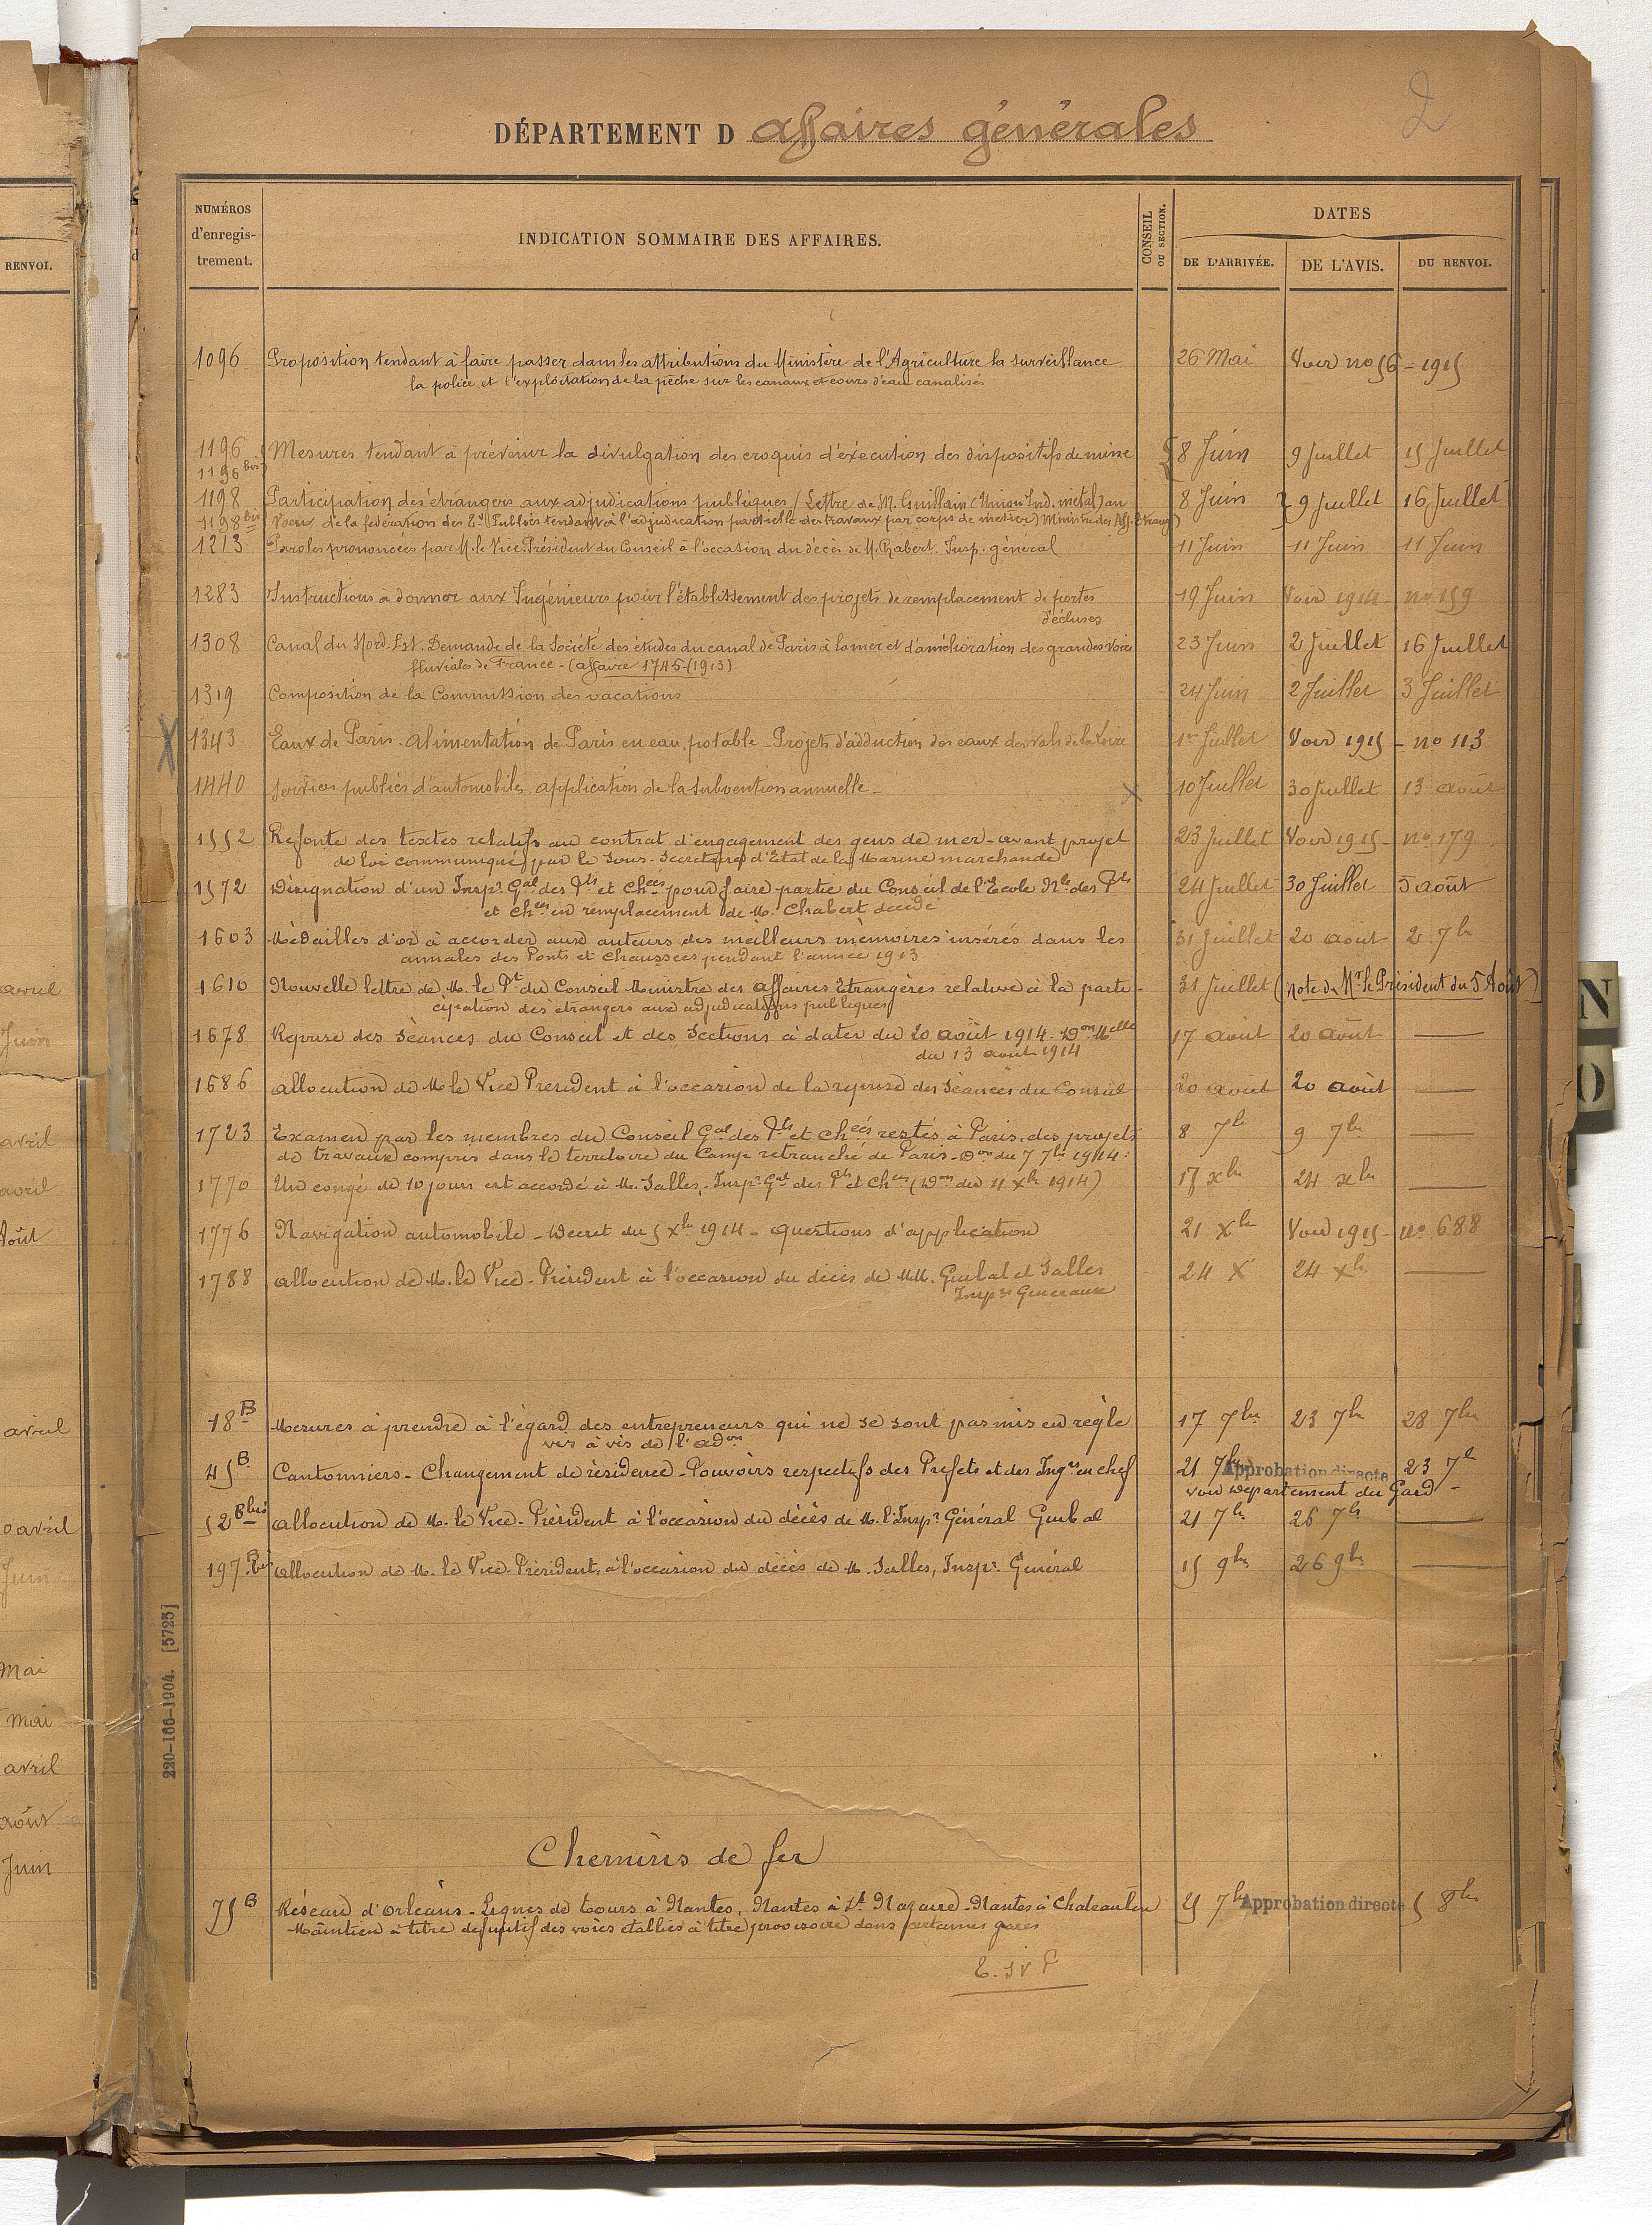 2
DÉPARTEMENT D affaires générales
NUMÉROS d'enregis- trement.
INDICATION SOMMAIRE DES AFFAIRES.
CONSEIL OU SECTION.
DATES
DE L'ARRIVÉE. DE L'AVIS. DU RENVOI.
RENVOI.
1096 Proposition tendant à faire passer dans les attributions du Ministère de l'Agriculture la surveillance 26 Mai Voir no 56 - 1915
la police et l'exploitation de la pêche sur les canaux et cours d'eau canalisés
1196 Mesures tendant à prévenir la divulgation des croquis d'exécution des dispositifs de mine 8 Juin 9 Juillet 15 Juillet
1196 bis
1198 Participation des étrangers aux adjudications publiques (Lettre de M. Guillain (Union Ind. métal) au 8 Juin 9 Juillet 16 Juillet
1198 bis Voeu de la fédération des Publics tendant à l'adjudication partielle des travaux par corps de métier) Ministre des Aff. Etrang)
1213 Paroles prononcées par M. le Vice Président du Conseil à l'occation du décès de M. Rabert. Insp. général 11 Juin 11 Juin 11 Juin
1283 Instructions à donner aux Ingénieurs pour l'établissement des projets de remplacement de portes 19 Juin Voir 1914 - no 159
d'écluses
1308 Canal du Nord-Est. Demande de la Société des études du canal de Paris à la mer et d'amélioration des grandes voies 23 Juin 2 Juillet 16 Juillet
fluviales de France - (affaire 1745 (1913)
1319 Composition de la Commission des vacations 24 Juin 2 Juillet 3 Juillet
X 1343 Eaux de Paris. Alimentation de Paris en eau potable - Projets d'adduction des eaux des vals de la Loire 1er Juillet Voir 1915 - no 113
1440 Services publics d'automobiles application de la subvention annuelle - X 10 Juillet 30 Juillet 13 août
1552 Refonte des textes relatifs au contrat d'engagement des gens de mer - avant projet 23 Juillet Voir 1915 - no 179
de loi communiqué par le Sous-Secrétaire d'Etat de la Marine marchande
1572 Désignation d'un Inspr Gal des Pts et Chées pour faire partie du Conseil de l'Ecole Nle des Pts 24 Juillet 30 Juillet 5 août
et Chées en remplacement de M. Chabert décédé
1603 Médailles d'or à accorder aux auteurs des meilleurs mémoires insérés dans les 31 Juillet 20 août 2 7bre
annales des Ponts et Chaussées pendant l'année 1913
1610 Nouvelle lettre de M. le Pt du Conseil Ministre des affaires Etrangères relative à la parti- 31 Juillet (note de Mr le Président du 5 Août)
cipation des étrangers aux adjudications publiques
1678 Reprise des Séances du Conseil et des Sections à dater du 20 août 1914. Don Mlle 17 août 20 août —
du 13 août 1914
1686 Allocution de M. le Vice Président à l'occasion de la reprise des Séances du Conseil 20 août 20 août —
1723 Examen par les membres du Conseil Gal des Pts et Chées restés à Paris, des projets 8 7bre 9 7bre —
de travaux compris dans le territoire du Camp retranché de Paris - Don du 7 7bre 1914.
1770 Un congé de 10 jours est accordé à M. Salles, Inspr Gal des Pts et Chées (Don du 11 Xbre 1914) 17 xbre 24 xbre —
1776 Navigation automobile - Décret du 5 Xbre 1914 - Questions d'application 21 Xbre Voir 1915 - no 688
1788 Allocution de M. le Vice-Président à l'occasion du décès de MM. Guibal et Salles 24 X 24 Xbre —
Insprs Généraux
18 B Mesures à prendre à l'égard des entrepreneurs qui ne se sont pas mis en règle 17 7bre 23 7bre 28 7bre
vis à vis de l'adon
45 B Cantonniers - Changement de résidence - Pouvoirs respectifs des Préfets et des Ingrs en chef 21 7bre Approbation directe 23 7bre
voir département du Gard -
52 B bis Allocution de M. le Vice-Président à l'occasion du décès de M. l'Inspr Général Guibal 21 7bre 26 7bre —
197 B bis Allocution de M. le Vice-Président, à l'occasion du décès de M. Salles, Inspr Général 15 9bre 26 9bre —
Chemins de fer
75 B Réseau d'Orléans - Lignes de Tours à Nantes, Nantes à St Nazaire - Nantes à Chateaulin 25 7bre Approbation directe 5 8bre
Maintien à titre définitif des voies établies à titre provisoire dans certaines gares
T. S. V. P
220-166-1904. [5725]
avril
Juin
avril
avril
Août
avril
avril
Juin
Mai
Mai
avril
août
Juin
N
O